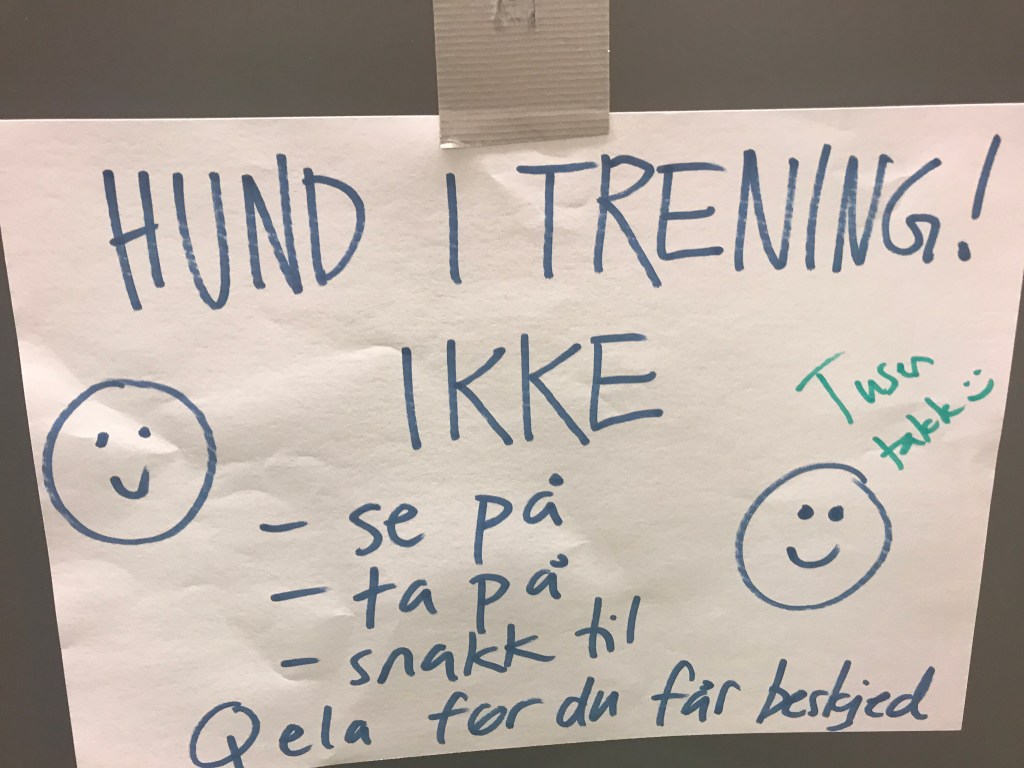 HUND I TRENING!
IKKE
Tusen
takk :)
- se på
- ta på
- snakk til
Qela før du får beskjed